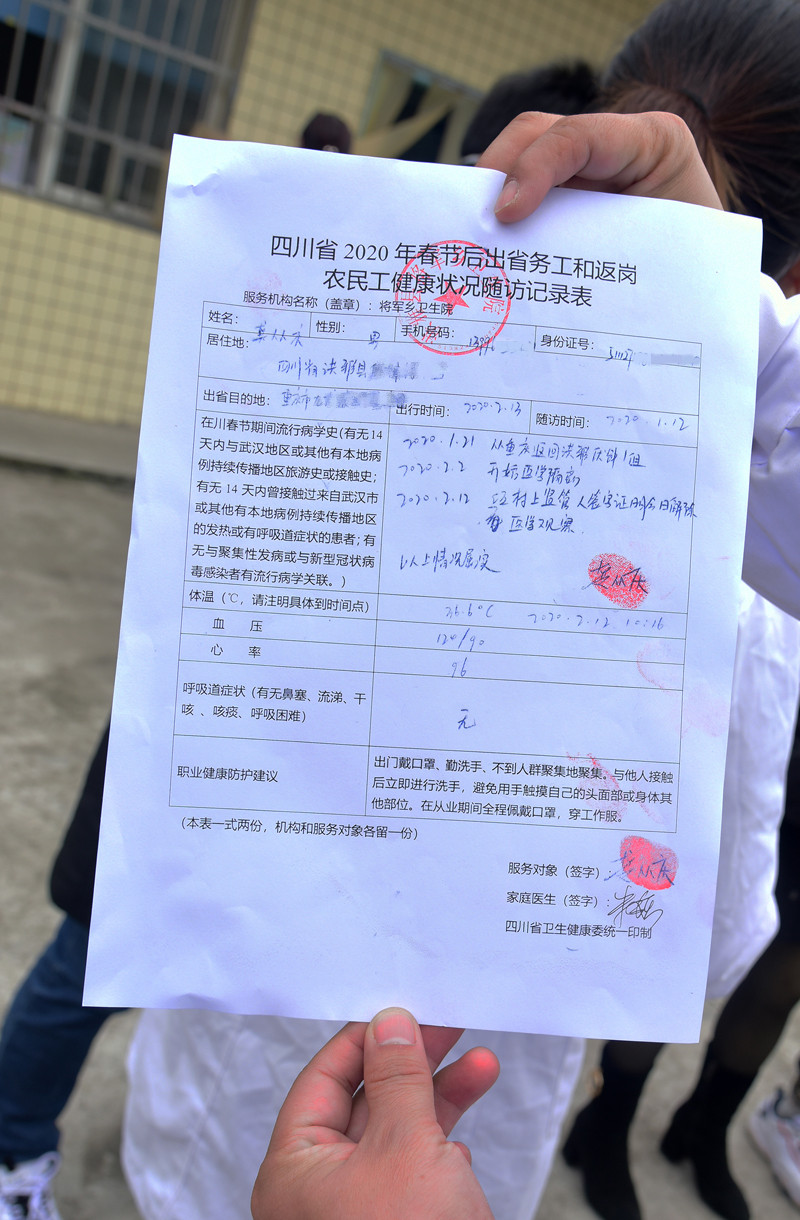 四川省 2020 年春节后出省务工和返岗
农民工健康状况随访记录表
服务机构名称（盖章）：将军乡卫生院
姓名： 从庆 性别： 男 手机号码： 身份证号：
居住地：
四川省洪雅县
出省目的地： 重 出行时间： 2020.2.13 随访时间： 2020.1.12
在川春节期间流行病学史(有无14
天内与武汉地区或其他有本地病
例持续传播地区旅游史或接触史；
有无 14 天内曾接触过来自武汉市
或其他有本地病例持续传播地区
的发热或有呼吸道症状的患者；有
无与聚集性发病或与新型冠状病
毒感染者有流行病学关联。）
2020.1.21 从重庆返回洪雅
2020.2.2 开始医学
2020.2.12 村上监管人签字证明今日解除
医学观察.
以上情况属实
从庆
体温（℃，请注明具体到时间点） 36.6℃ 2020.2.12 10:16
血 压 120/90
心 率 96
呼吸道症状（有无鼻塞、流涕、干
咳 、咳痰、呼吸困难）
无
职业健康防护建议
出门戴口罩、勤洗手、不到人群聚集地聚集。与他人接触
后立即进行洗手，避免用手触摸自己的头面部或身体其
他部位。在从业期间全程佩戴口罩，穿工作服。
（本表一式两份，机构和服务对象各留一份）
服务对象（签字） 从庆
家庭医生（签字）：
四川省卫生健康委统一印制